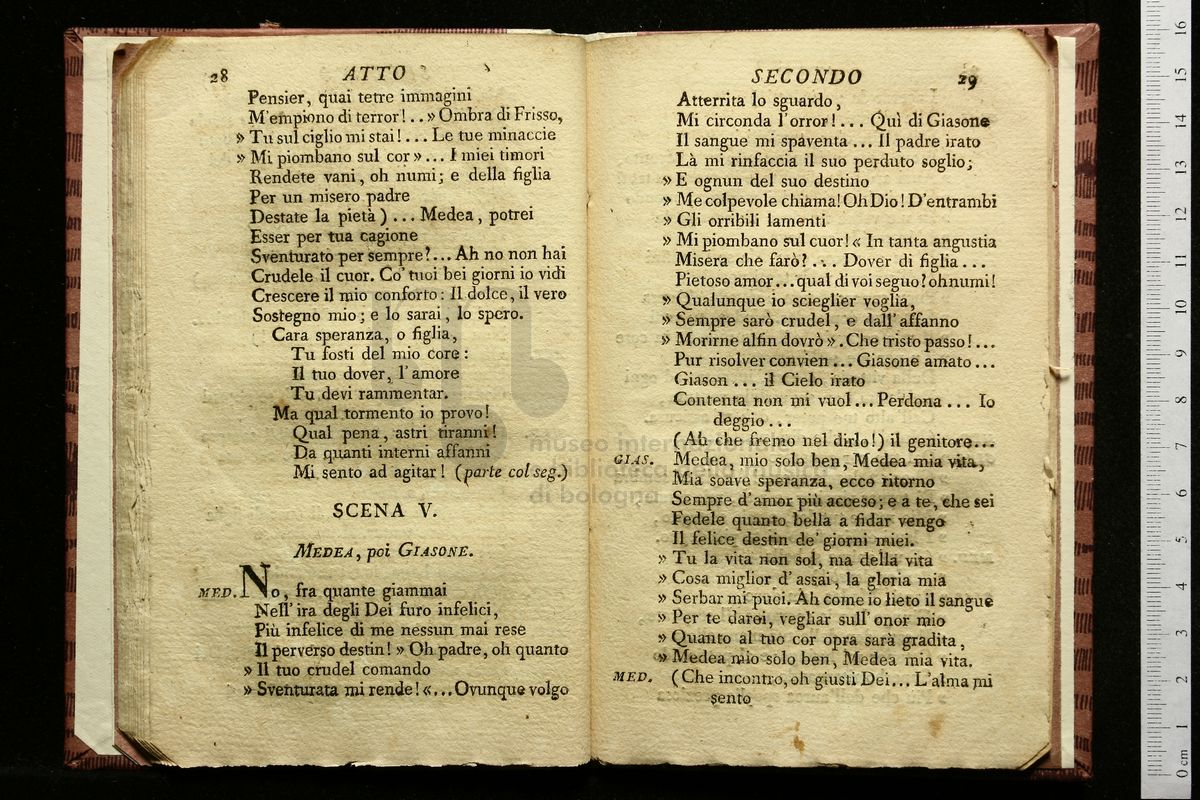 28 ATTO
Pensier, quai tetre immagini
M'empiono di terror!..» Ombra di Frisso,
» Tu sul ciglio mi stai!... Le tue minaccie
» Mi piombano sul cor»... I miei timori
Rendete vani, oh numi; e della figlia
Per un misero padre
Destate la pietà)... Medea, potrei
Esser per tua cagione
Sventurato per sempre?... Ah no non hai
Crudele il cuor. Co' tuoi bei giorni io vidi
Crescere il mio conforto: Il dolce, il vero
Sostegno mio; e lo sarai, lo spero.
Cara speranza, o figlia,
Tu fosti del mio core:
Il tuo dover, l'amore
Tu devi rammentar.
Ma qual tormento io provo!
Qual pena, astri tiranni!
Da quanti interni affanni
Mi sento ad agitar! (parte col seg.)
SCENA V.
MEDEA, poi GIASONE.
MED. No, fra quante giammai
Nell' ira degli Dei furo infelici,
Più infelice di me nessun mai rese
Il perverso destin! » Oh padre, oh quanto
» Il tuo crudel comando
» Sventurata mi rende! «... Ovunque volgo
SECONDO 29
Atterrita lo sguardo,
Mi circonda l'orror!... Quì di Giasone
Il sangue mi spaventa... Il padre irato
Là mi rinfaccia il suo perduto soglio;
» E ognun del suo destino
» Me colpevole chiama! Oh Dio! D'entrambi
» Gli orribili lamenti
» Mi piombano sul cuor! « In tanta angustia
Misera che farò?... Dover di figlia...
Pietoso amor...qual di voi seguo? oh numi!
» Qualunque io scieglier voglia,
» Sempre sarò crudel, e dall' affanno
» Morirne alfin dovrò ». Che tristo passo!...
Pur risolver convien... Giasone amato...
Giason... il Cielo irato
Contenta non mi vuol... Perdona... Io
deggio...
(Ah che fremo nel dirlo!) il genitore...
GIAS. Medea, mio solo ben, Medea mia vita,
Mia soave speranza, ecco ritorno
Sempre d'amor più acceso; e a te, che sei
Fedele quanto bella a fidar vengo
Il felice destin de' giorni miei.
» Tu la vita non sol, ma della vita
» Cosa miglior d' assai, la gloria mia
» Serbar mi puoi. Ah come io lieto il sangue
» Per te darei, vegliar sull' onor mio
» Quanto al tuo cor opra sarà gradita,
» Medea mio solo ben, Medea mia vita.
MED. (Che incontro, oh giusti Dei... L'alma mi
sento
museo inter
biblioteca della musica
di bologna
0 cm 1 2 3 4 5 6 7 8 9 10 11 12 13 14 15 16